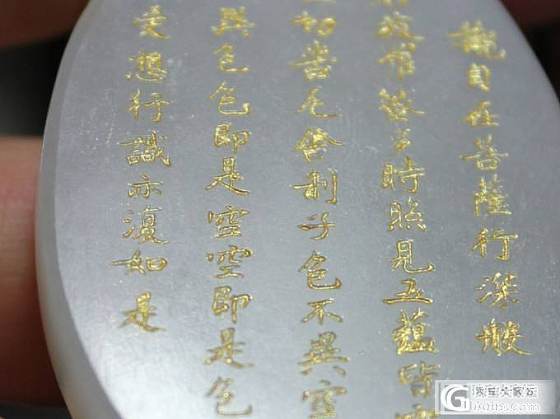 觀自在菩薩行深般
波羅蜜多時照見五蘊皆
切苦厄舍利子色不異空
異色色即是空空即是色
受想行識亦復如是